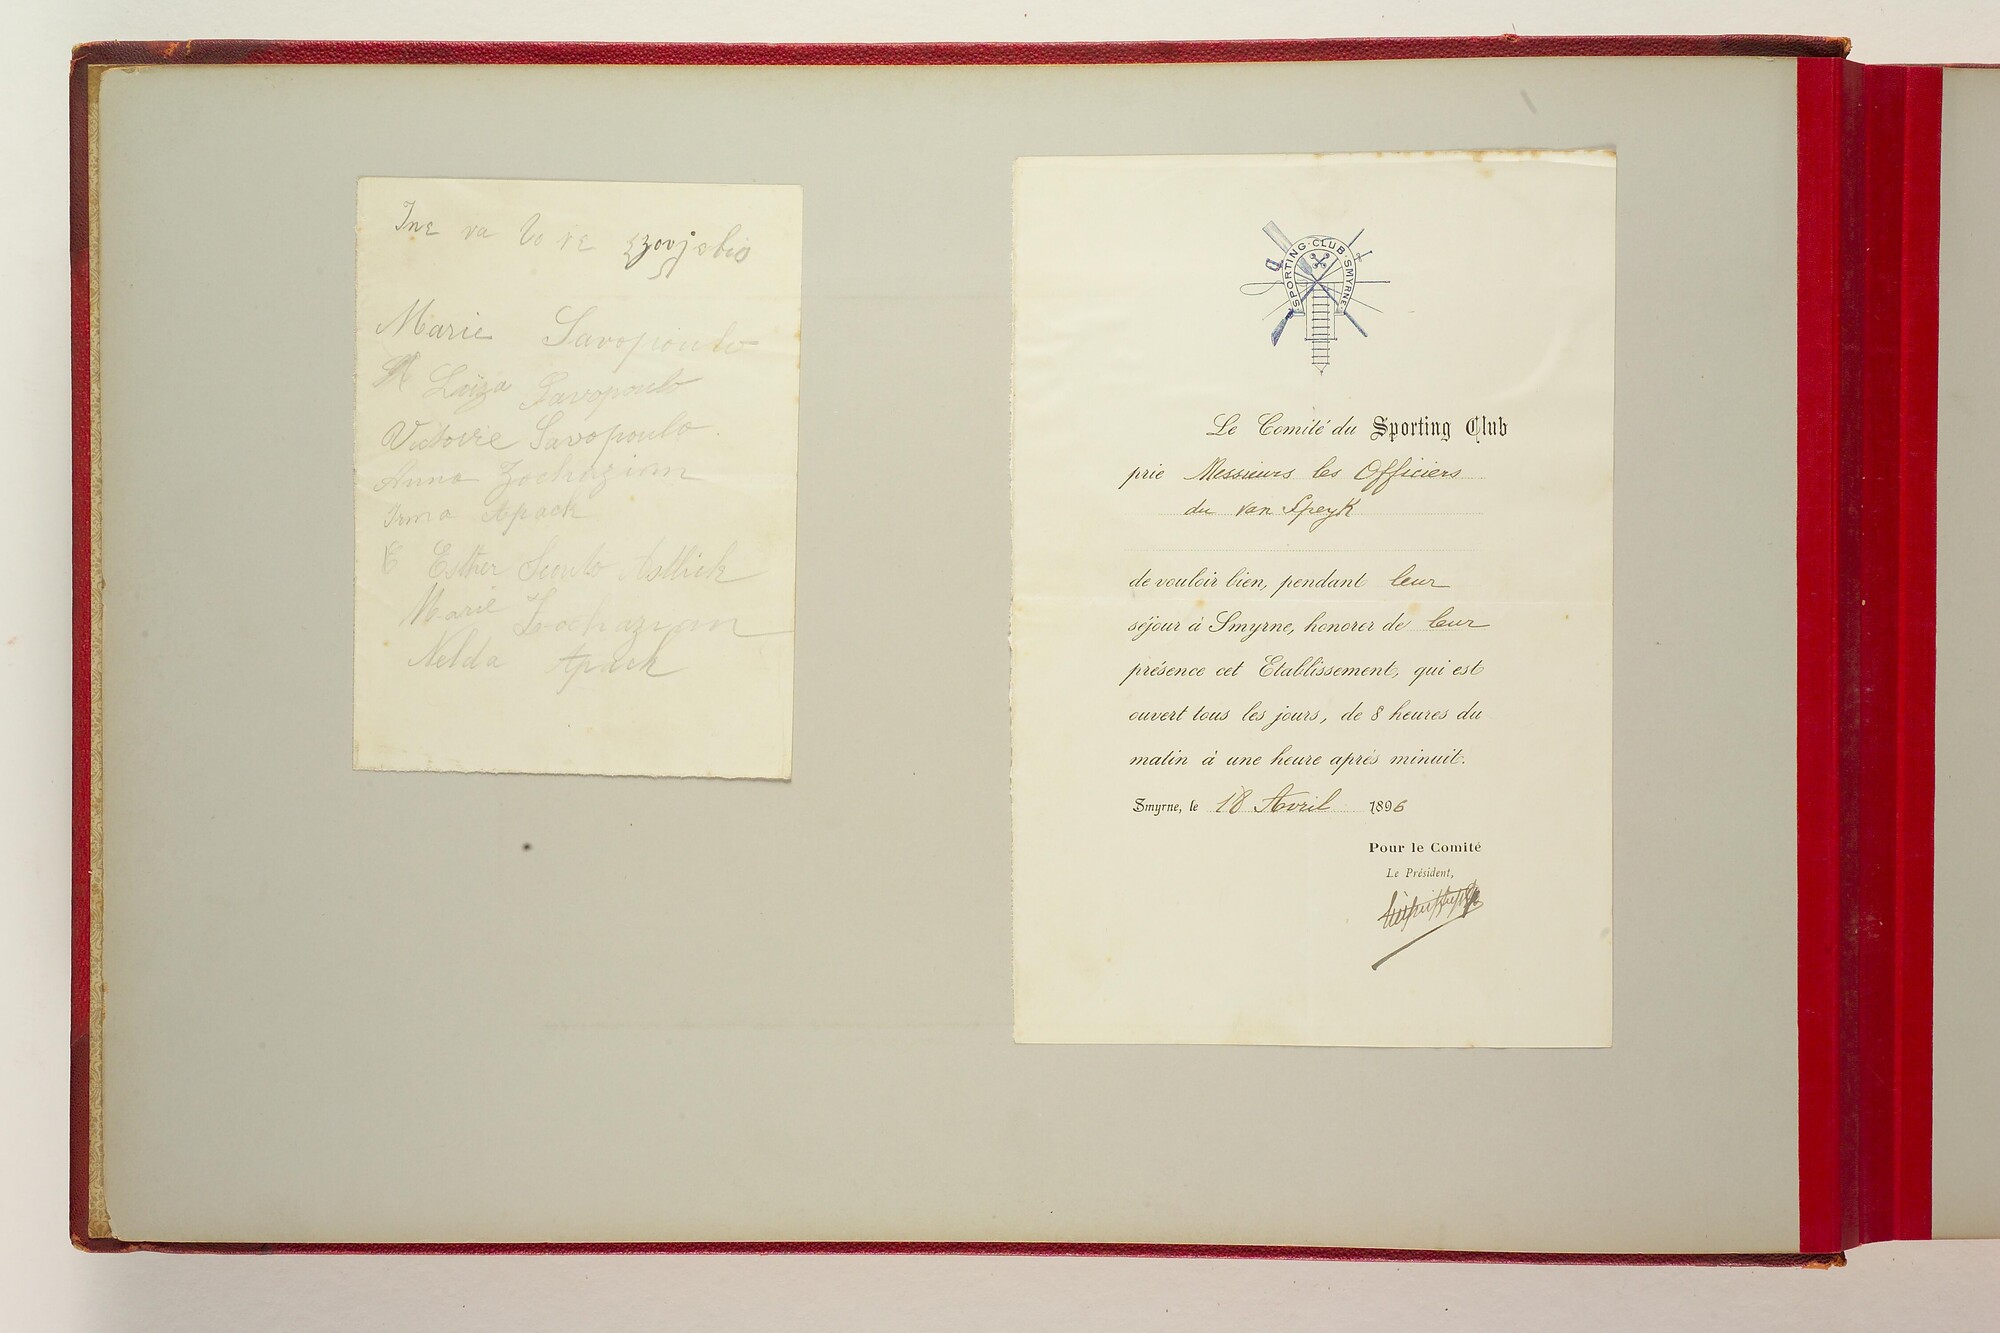 Marie Savopoulo
Luiza Savopoulo
Victorie Savopoulo.
Anna Zochazian
Irma Apack
Esther
Marie Zochazian
Nelda Apack
SPORTING·CLUB·SMYRNE
Le Comité du Sporting Club
prie Messieurs les Officiers
du van Speyk
de vouloir bien, pendant leur
séjour à Smyrne, honorer de leur
présence cet Etablissement, qui est
ouvert tous les jours, de 8 heures du
matin à une heure après minuit.
Smyrne, le 18 Avril 1896
Pour le Comité
Le Président,